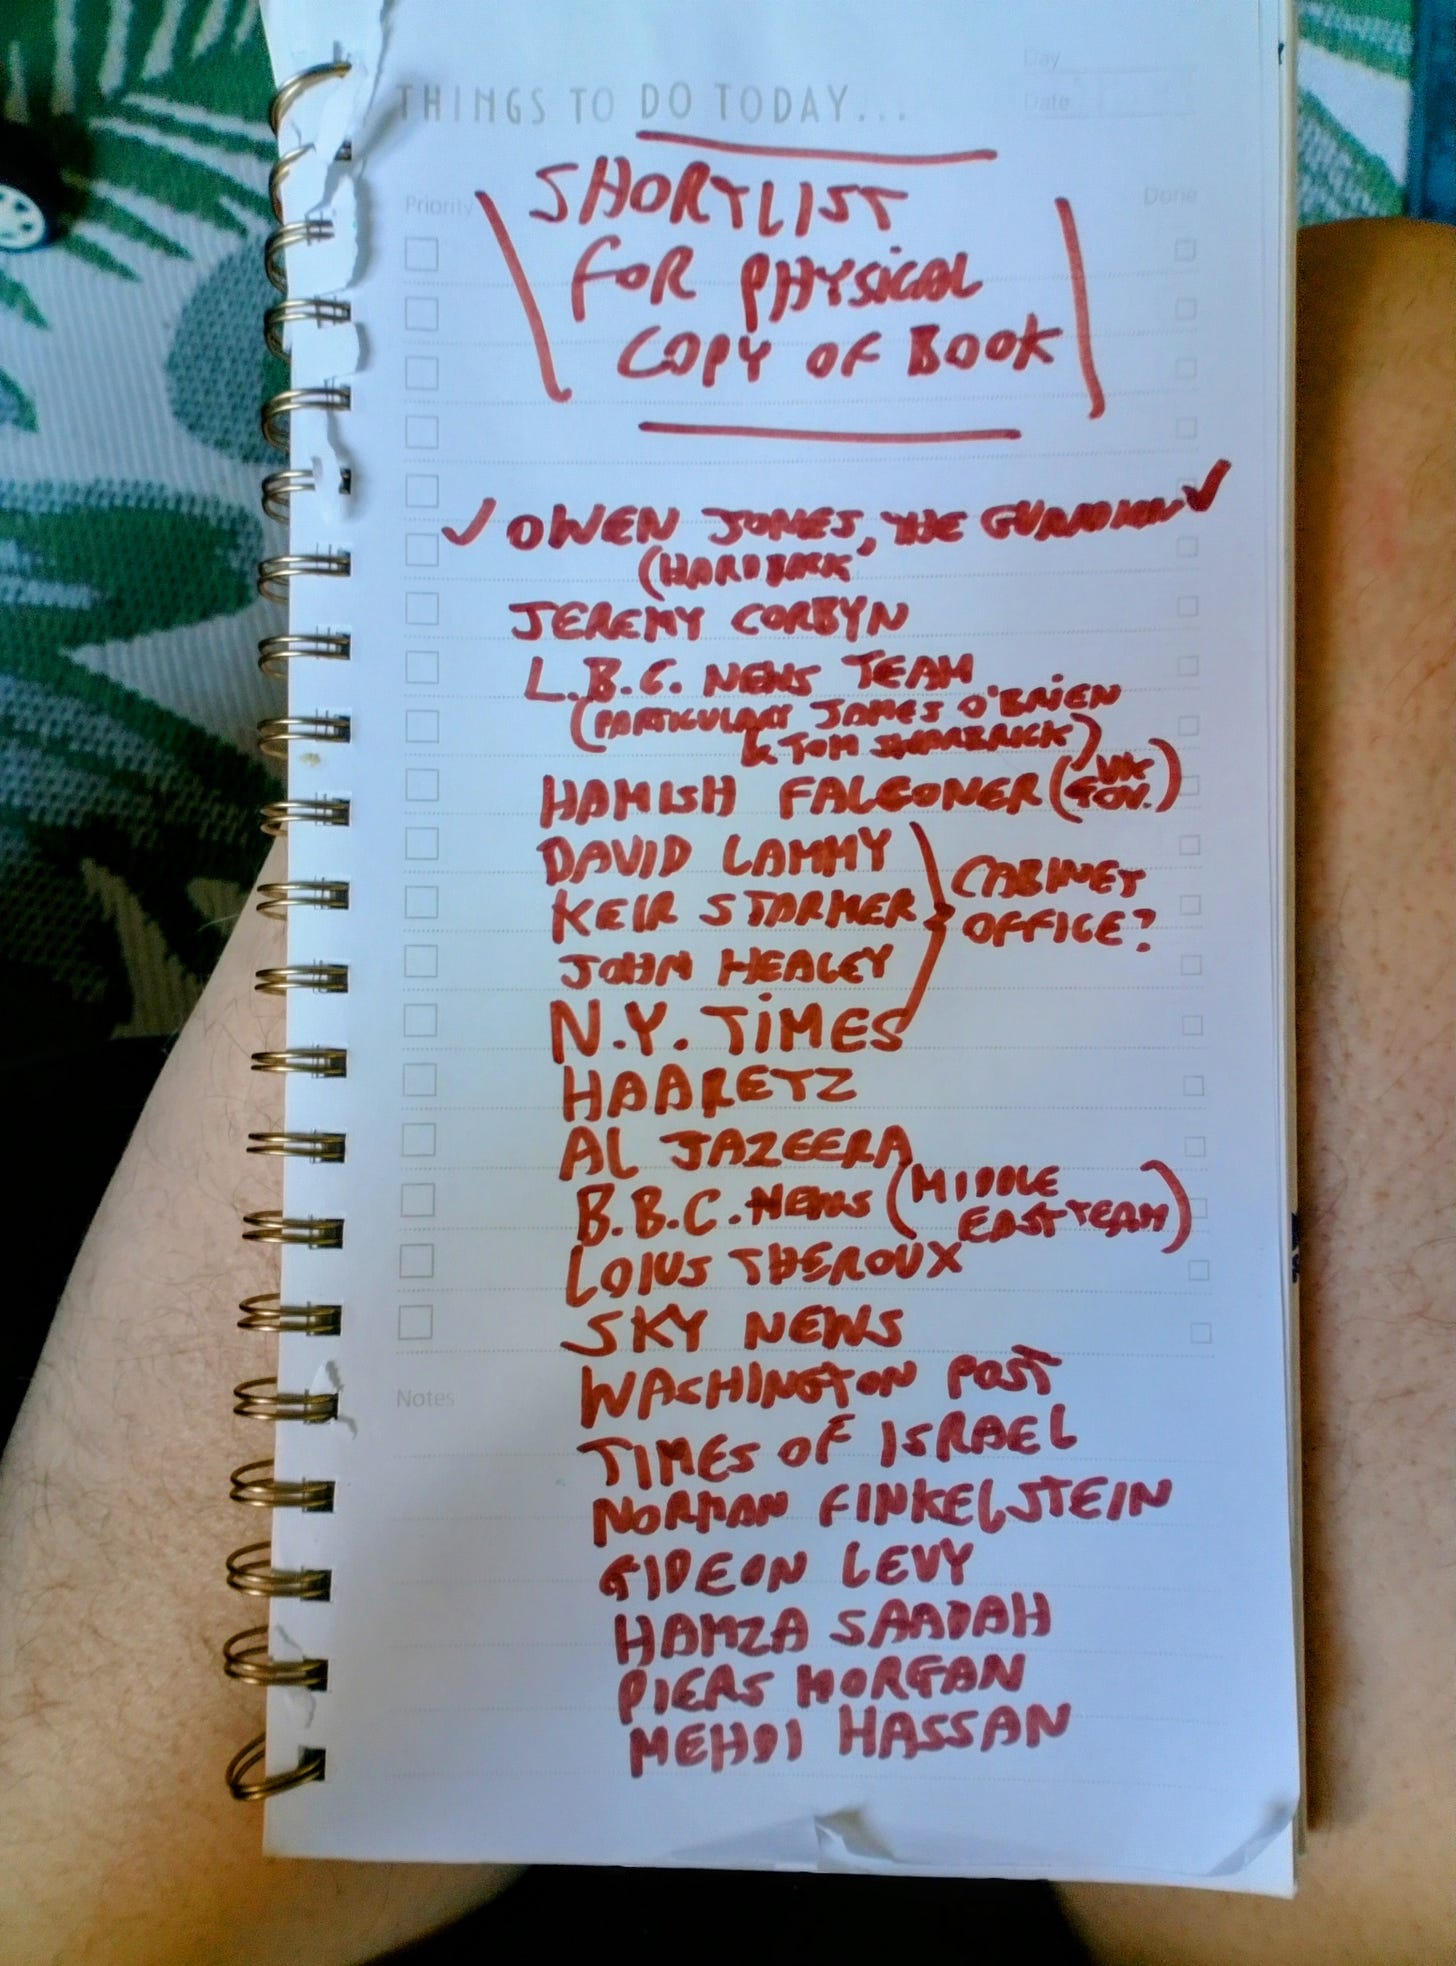 Day
THINGS TO DO TODAY...
Date
Priority
Done
SHORTLIST
FOR PHYSICAL
COPY OF BOOK
✓ OWEN JONES, THE GURADIAN ✓
(HARDBACK
JEREMY CORBYN
L.B.C. NEWS TEAM
(PARTICULARY JAMES O'BRIEN
& TOM SWARBRICK)
HAMISH FALCONER (UK
GOV.)
DAVID LAMMY
KEIR STARMER
JOHN HEALEY
CABINET
OFFICE?
N.Y. TIMES
HAARETZ
AL JAZEERA
B.B.C. NEWS (MIDDLE
EAST TEAM)
LOIUS THEROUX
SKY NEWS
WASHINGTON POST
Notes
TIMES OF ISRAEL
NORMAN FINKELSTEIN
GIDEON LEVY
HAMZA SAADAH
PIERS MORGAN
MEHDI HASSAN